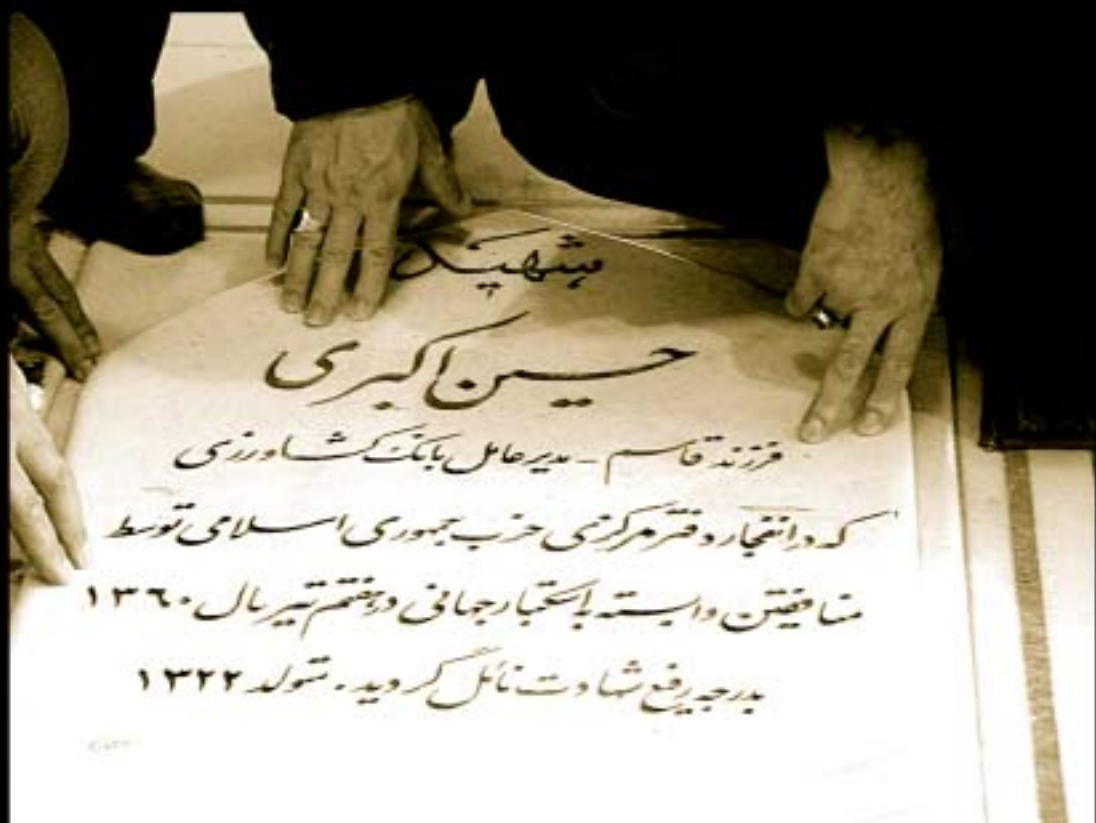 شهید
حسین اکبری
فرزند قاسم - مدیر عامل بانک کشاورزی
که در انفجار دفتر مرکزی حزب جمهوری اسلامی توسط
منافقین وابسته باستکبار جهانی در هفتم تیر سال ۱۳۶۰
بدرجه رفیع شهادت نائل گردید. متولد ۱۳۲۲